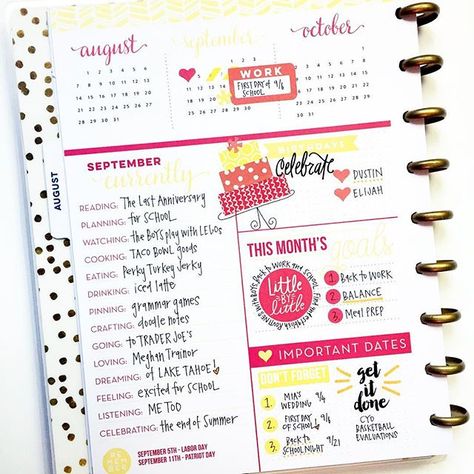 august
september
october
1 2 3 4 5 6
7 8 9 10 11 12 13
14 15 16 17 18 19 20
21 22 23 24 25 26 27
28 29 30 31
WORK
FIRST DAY OF 9/6
SCHOOL
AUGUST
SEPTEMBER
currently
READING: The Last Anniversary
PLANNING: for SCHOOL
WATCHING: the BOYS play with LEGOs
COOKING: TACO BOWL goods
EATING: Perky Turkey Jerky
DRINKING: iced latte
PINNING: grammar games
CRAFTING: doodle notes
GOING: to TRADER JOE'S
LOVING: Meghan Trainor
DREAMING: of LAKE TAHOE!
FEELING: excited for SCHOOL
LISTENING: ME TOO
CELEBRATING: the end of Summer
REMEMBER
SEPTEMBER 5TH - LABOR DAY
SEPTEMBER 11TH - PATRIOT DAY
BIRTHDAYS
Celebrate
DUSTIN
ELIJAH
THIS MONTH'S
goals
Little
BYE
Little
1 BACK to WORK
2 BALANCE
3 MEAL PREP
IMPORTANT DATES
DON'T FORGET
1. MIA'S
WEDDING 9/4
2. FIRST DAY 9/6
OF SCHOOL!
3. BACK to
SCHOOL NIGHT 9/21
get
it
done
CYO
BASKETBALL
EVALUATIONS